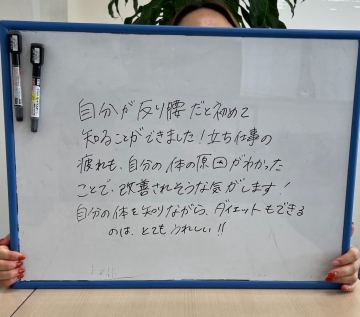 自分が反り腰だと初めて
知ることができました!立ち仕事の
疲れも、自分の体の原因がわかった
ことで、改善されそうな気がします!
自分の体を知りながら、ダイエットもできる
のは、とてもうれしい!!